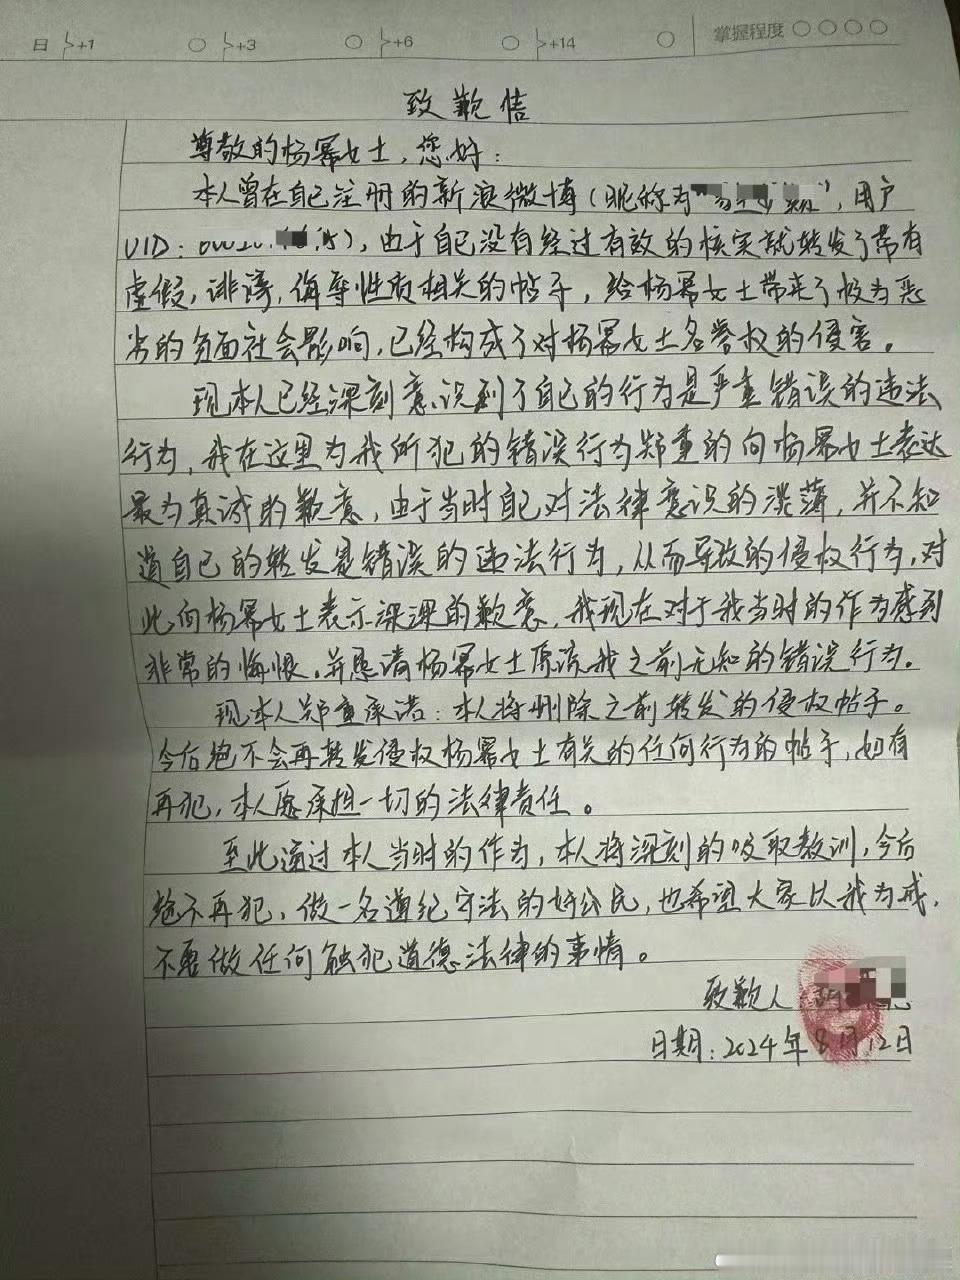 日 +1 +3 +6 +14 掌握程度
致歉信
尊敬的杨幂女士，您好：
本人曾在自己注册的新浪微博（昵称为" "，用户
UID： ），由于自己没有经过有效的核实就转发了带有
虚假，诽谤，侮辱性质相关的帖子，给杨幂女士带来了极为恶
劣的负面社会影响，已经构成了对杨幂女士名誉权的侵害。
现本人已经深刻意识到了自己的行为是严重错误的违法
行为，我在这里为我所犯的错误行为郑重的向杨幂女士表达
最为真诚的歉意，由于当时自己对法律意识的淡薄，并不知
道自己的转发是错误的违法行为，从而导致的侵权行为，对
此向杨幂女士表示深深的歉意，我现在对于我当时的作为感到
非常的悔恨，并恳请杨幂女士原谅我之前无知的错误行为。
现本人郑重承诺：本人将删除之前转发的侵权帖子。
今后绝不会再转发侵权杨幂女士有关的任何行为的帖子，如有
再犯，本人愿承担一切的法律责任。
至此通过本人当时的作为，本人将深刻的吸取教训，今后
绝不再犯，做一名遵纪守法的好公民，也希望大家以我为戒，
不要做任何触犯道德法律的事情。
致歉人
日期：2024年8月12日